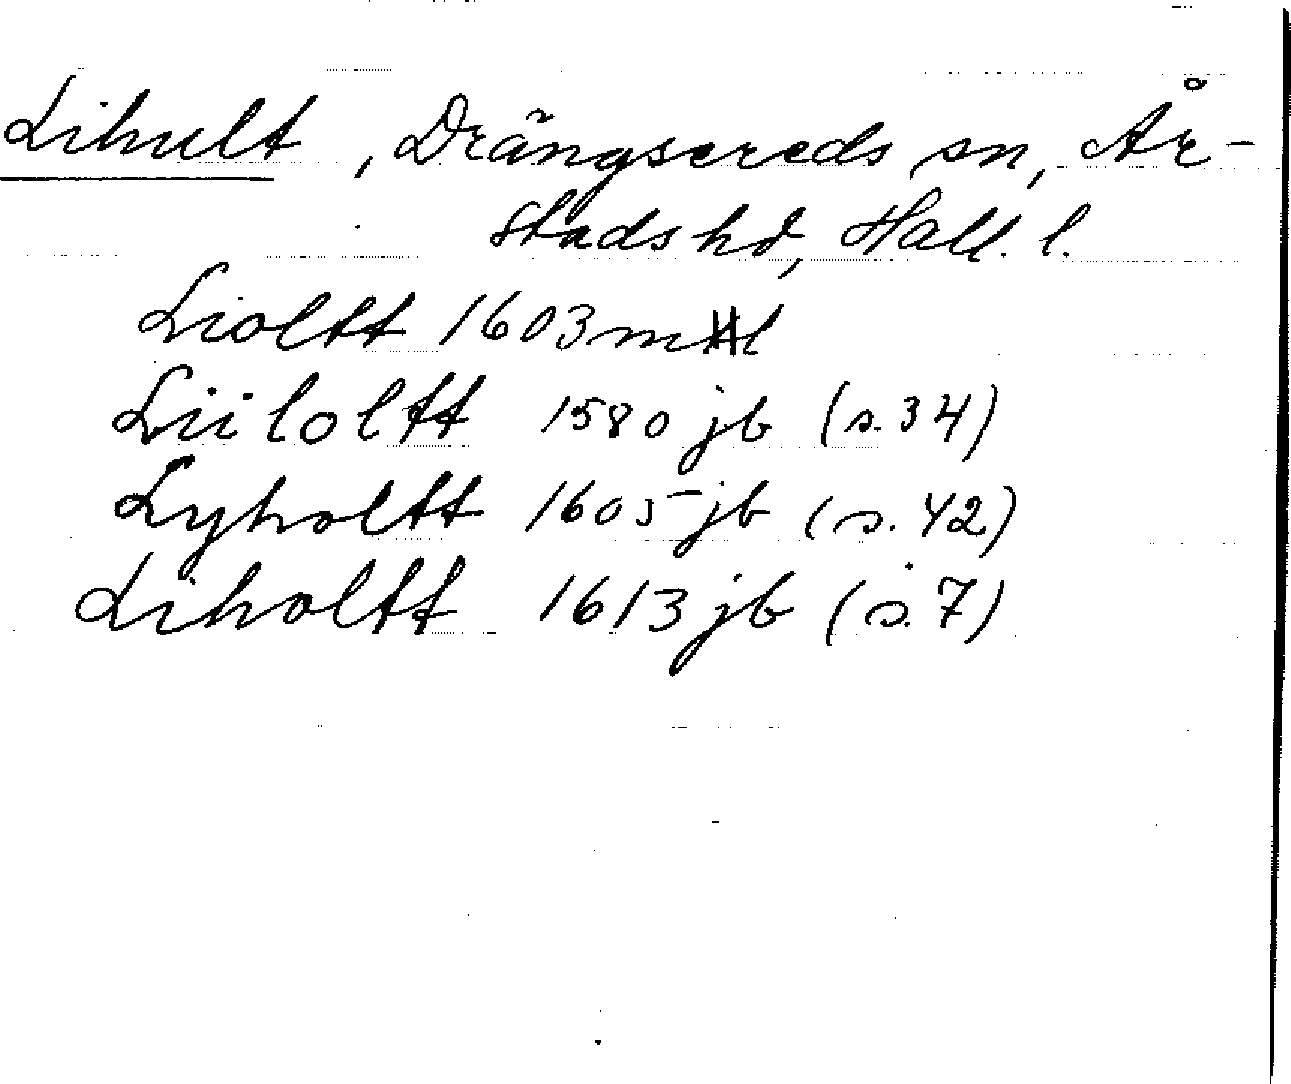 Lihult, Drängsereds sn, År-
stads hd, Hall. l.
Lioltt 1603 mtl
Liiloltt 1580 jb (s. 34)
Lyholtt 1605 jb (s. 42)
Liholtt 1613 jb (s. 7)